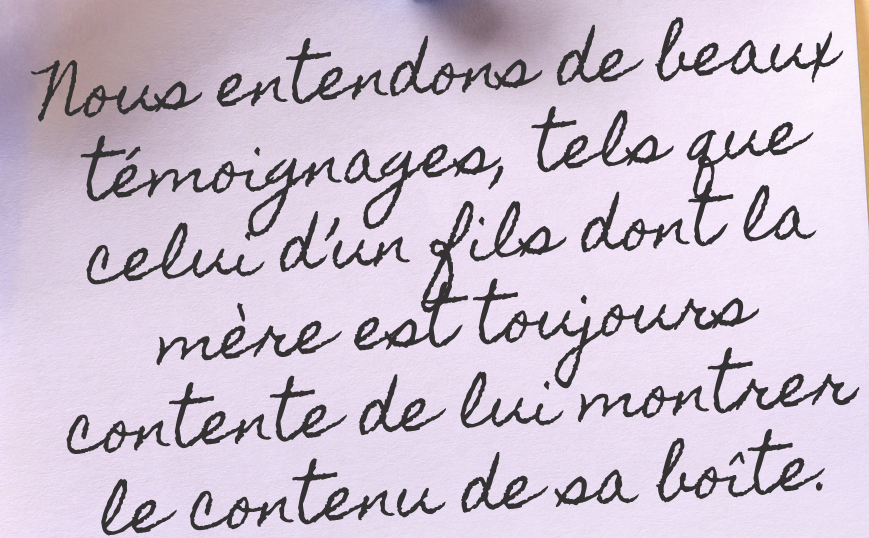 Nous entendons de beaux
témoignages, tels que
celui d'un fils dont la
mère est toujours
contente de lui montrer
le contenu de sa boîte.